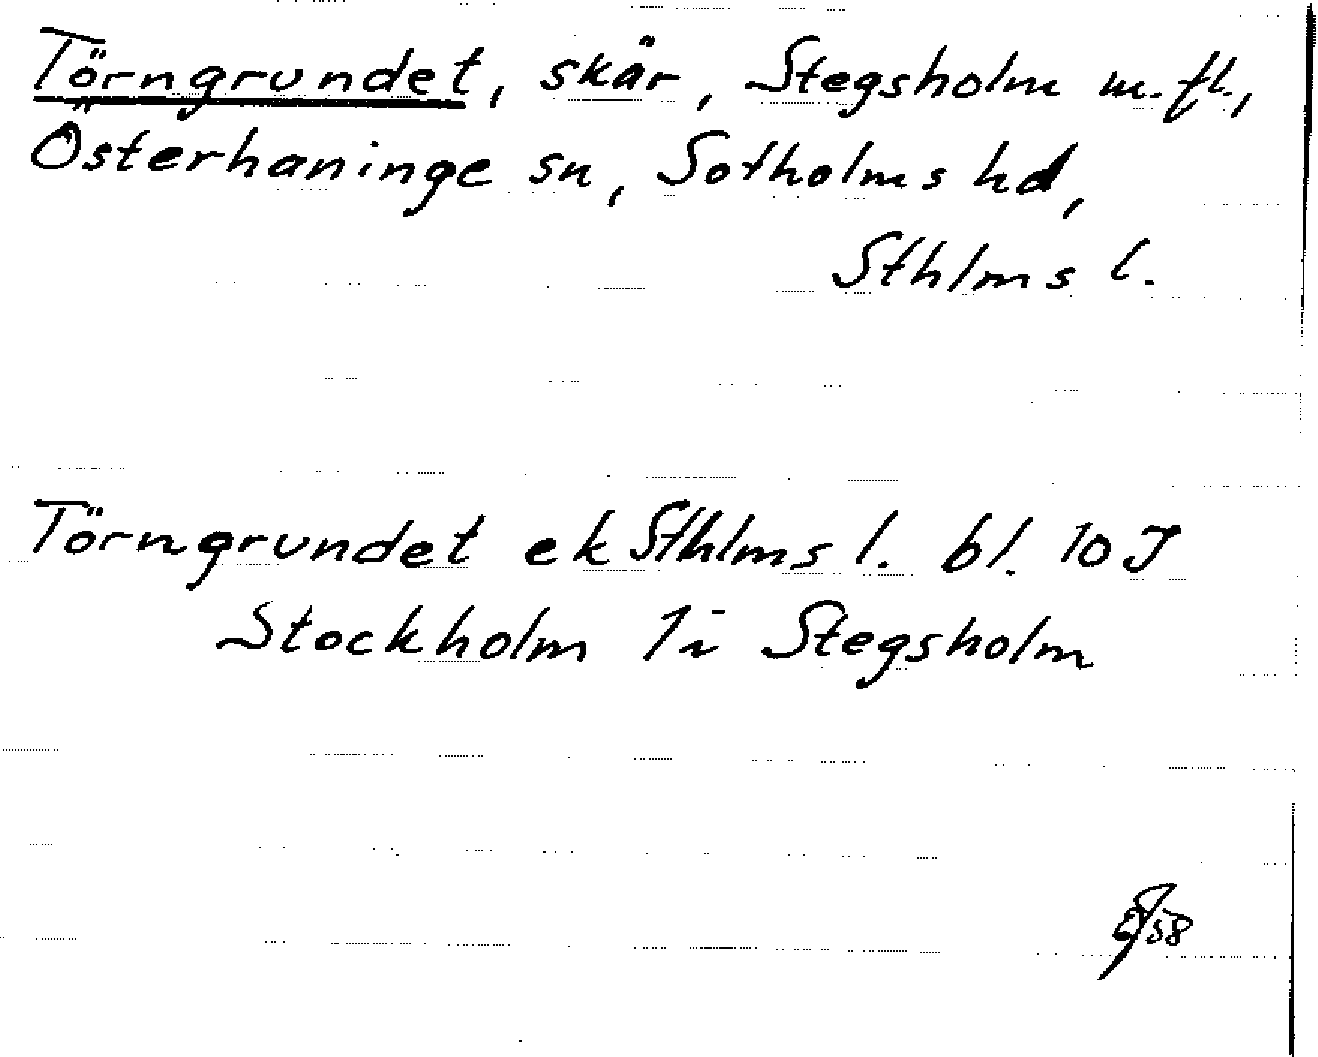 Törngrundet, skär, Stegsholm m. fl.,
Österhaninge sn, Sotholms hd,
Sthlms l.
Törngrundet ek Sthlms l. bl. 10 J
Stockholm 1i Stegsholm
58